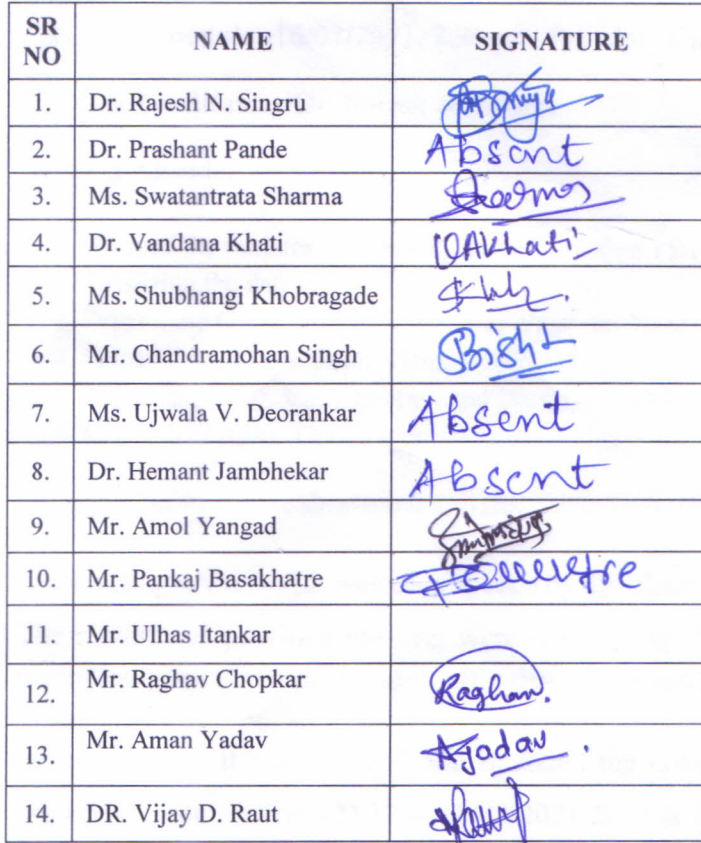 SR NO NAME SIGNATURE
1. Dr. Rajesh N. Singru
2. Dr. Prashant Pande Absent
3. Ms. Swatantrata Sharma Sharma
4. Dr. Vandana Khati VAKhati
5. Ms. Shubhangi Khobragade
6. Mr. Chandramohan Singh Bisht
7. Ms. Ujwala V. Deorankar Absent
8. Dr. Hemant Jambhekar Absent
9. Mr. Amol Yangad
10. Mr. Pankaj Basakhatre
11. Mr. Ulhas Itankar
12. Mr. Raghav Chopkar Raghav.
13. Mr. Aman Yadav AYadav.
14. DR. Vijay D. Raut